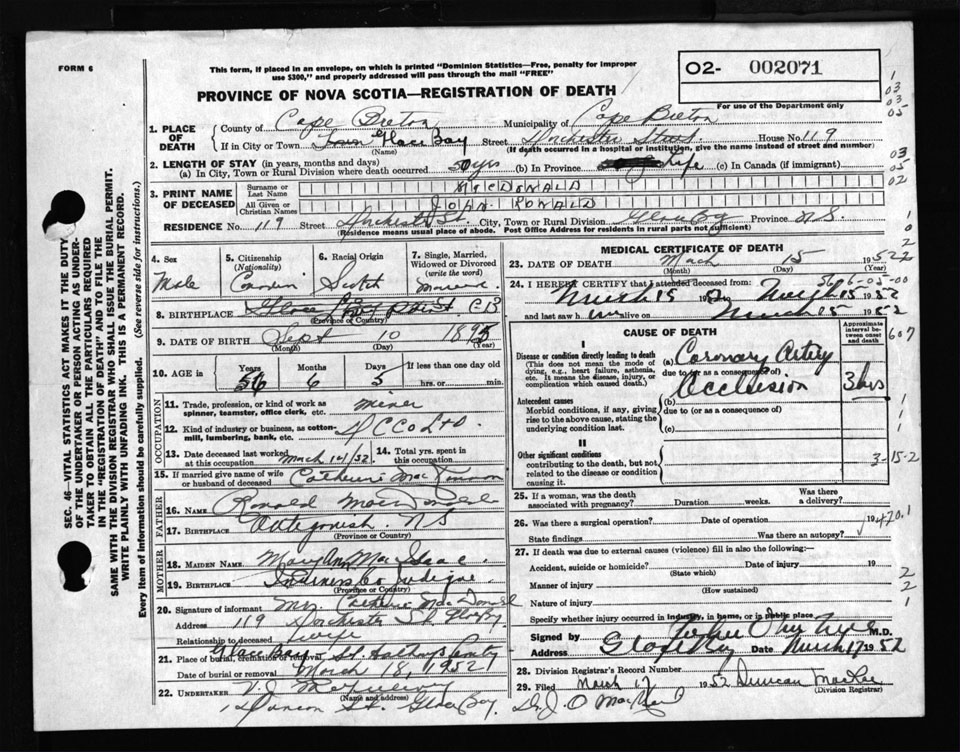 FORM 6
This form, if placed in an envelope, on which is printed "Dominion Statistics—Free, penalty for improper
use $300," and properly addressed will pass through the mail "FREE"
O2- 002071
PROVINCE OF NOVA SCOTIA—REGISTRATION OF DEATH
For use of the Department only
1. PLACE OF DEATH
County of Cape Breton Municipality of Cape Breton
If in City or Town Town Glace Bay Street Dorchester Street House No. 119
(Name) (If death occurred in a hospital or institution, give the name instead of street and number)
2. LENGTH OF STAY (in years, months and days)
(a) In City, Town or Rural Division where death occurred 50 yrs (b) In Province Life (c) In Canada (if immigrant)
3. PRINT NAME OF DECEASED
Surname or Last Name MACDONALD
All Given or Christian Names JOHN RONALD
RESIDENCE No. 119 Street Dorchester St. City, Town or Rural Division Glace Bay Province N.S.
(Residence means usual place of abode. Post Office Address for residents in rural parts not sufficient)
4. Sex Male
5. Citizenship (Nationality) Canadian
6. Racial Origin Scotch
7. Single, Married, Widowed or Divorced (write the word) Married
8. BIRTHPLACE C B
(Province or Country)
9. DATE OF BIRTH Sept 10 1895
(Month) (Day) (Year)
10. AGE in Years 56 Months 6 Days 5 If less than one day old hrs. or min.
OCCUPATION
11. Trade, profession, or kind of work as spinner, teamster, office clerk, etc. miner
12. Kind of industry or business, as cotton-mill, lumbering, bank, etc. D C Co LTD
13. Date deceased last worked at this occupation March 14/52
14. Total yrs. spent in this occupation
15. If married give name of wife or husband of deceased Catherine MacKinnon
FATHER
16. NAME Ronald MacDonald
17. BIRTHPLACE Antigonish N S
(Province or Country)
MOTHER
18. MAIDEN NAME Mary Ann MacIsaac
19. BIRTHPLACE Inverness Co Judique
(Province or Country)
20. Signature of informant Mrs. Catherine MacDonald
Address 119 Dorchester St Glace Bay
Relationship to deceased wife
21. Place of burial, cremation or removal Glace Bay St. Anthonys
Date of burial or removal March 18, 1952
22. UNDERTAKER V. J.
(Name and address)
St. Glace Bay.
MEDICAL CERTIFICATE OF DEATH
23. DATE OF DEATH Mach 15 1952
(Month) (Day)
24. I HEREBY CERTIFY that I attended deceased from:
March 15 52 to March 15 1952
and last saw him alive on March 15 1952
CAUSE OF DEATH
Approximate interval between onset and death
I
Disease or condition directly leading to death
(This does not mean the mode of dying, e.g., heart failure, asthenia, etc. It means the disease, injury, or complication which caused death.)
(a) Coronary Artery
due to (or as a consequence of)
Occlusion 3 hrs
Antecedent causes
Morbid conditions, if any, giving rise to the above cause, stating the underlying condition last.
(b)
due to (or as a consequence of)
(c)
II
Other significant conditions
contributing to the death, but not related to the disease or condition causing it.
3-15-2
25. If a woman, was the death associated with pregnancy? Duration weeks. Was there a delivery?
26. Was there a surgical operation? Date of operation
State findings Was there an autopsy?
27. If death was due to external causes (violence) fill in also the following:—
Accident, suicide or homicide? Date of injury 19
(State which)
Manner of injury
(How sustained)
Nature of injury
Specify whether injury occurred in industry, in home, or in public place
Signed by M.D.
Address Glace Bay Date March 17 1952
28. Division Registrar's Record Number
29. Filed March 17 1952 Duncan MacRae
(Division Registrar)
Dr. J. O
SEC. 46—VITAL STATISTICS ACT MAKES IT THE DUTY
OF THE UNDERTAKER OR PERSON ACTING AS UNDER-
TAKER TO OBTAIN ALL THE PARTICULARS REQUIRED
IN THE "REGISTRATION OF DEATH" AND TO FILE THE
SAME WITH THE DIVISION REGISTRAR WHO SHALL ISSUE THE BURIAL PERMIT.
WRITE PLAINLY WITH UNFADING INK. THIS IS A PERMANENT RECORD.
Every item of information should be carefully supplied. (See reverse side for instructions.)